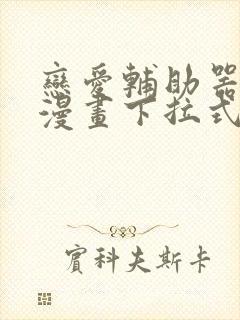 戀愛輔助器
漫畫下拉式
賓科夫斯卡